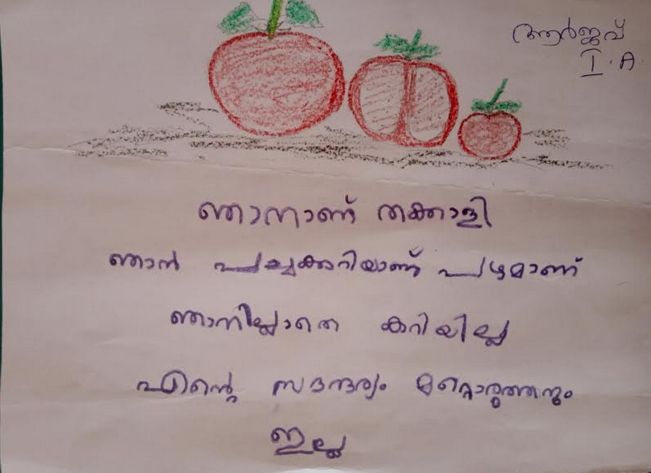 ആർജ്ജവ്
I. A
ഞാനാണ് തക്കാളി
ഞാൻ പച്ചക്കറിയാണ് പഴമാണ്
ഞാനില്ലാതെ കറിയില്ല
എന്റെ സൗന്ദര്യം മറ്റൊരുത്തനും
ഇല്ല